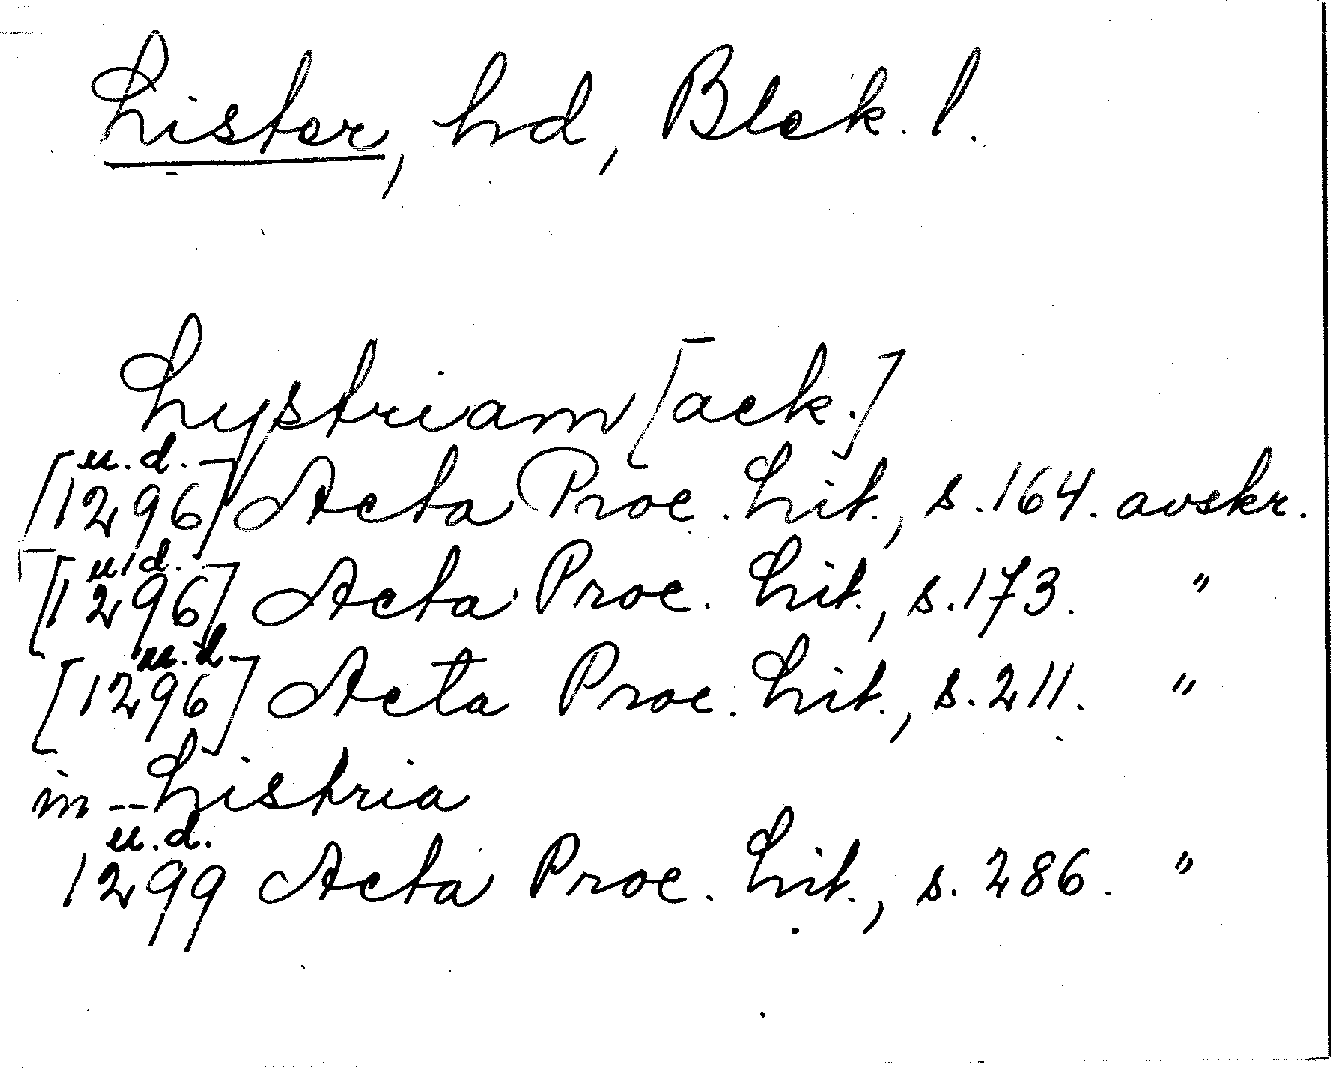 Lister, hd, Blek. l.
Lystriam [ack.]
[u.d. 1296] Acta Proc. Lit., s. 164. avskr.
[u.d. 1296] Acta Proc. Lit., s. 173. "
[u.d. 1296] Acta Proc. Lit., s. 211. "
in -- Listria
u.d. 1299 Acta Proc. Lit., s. 286. "